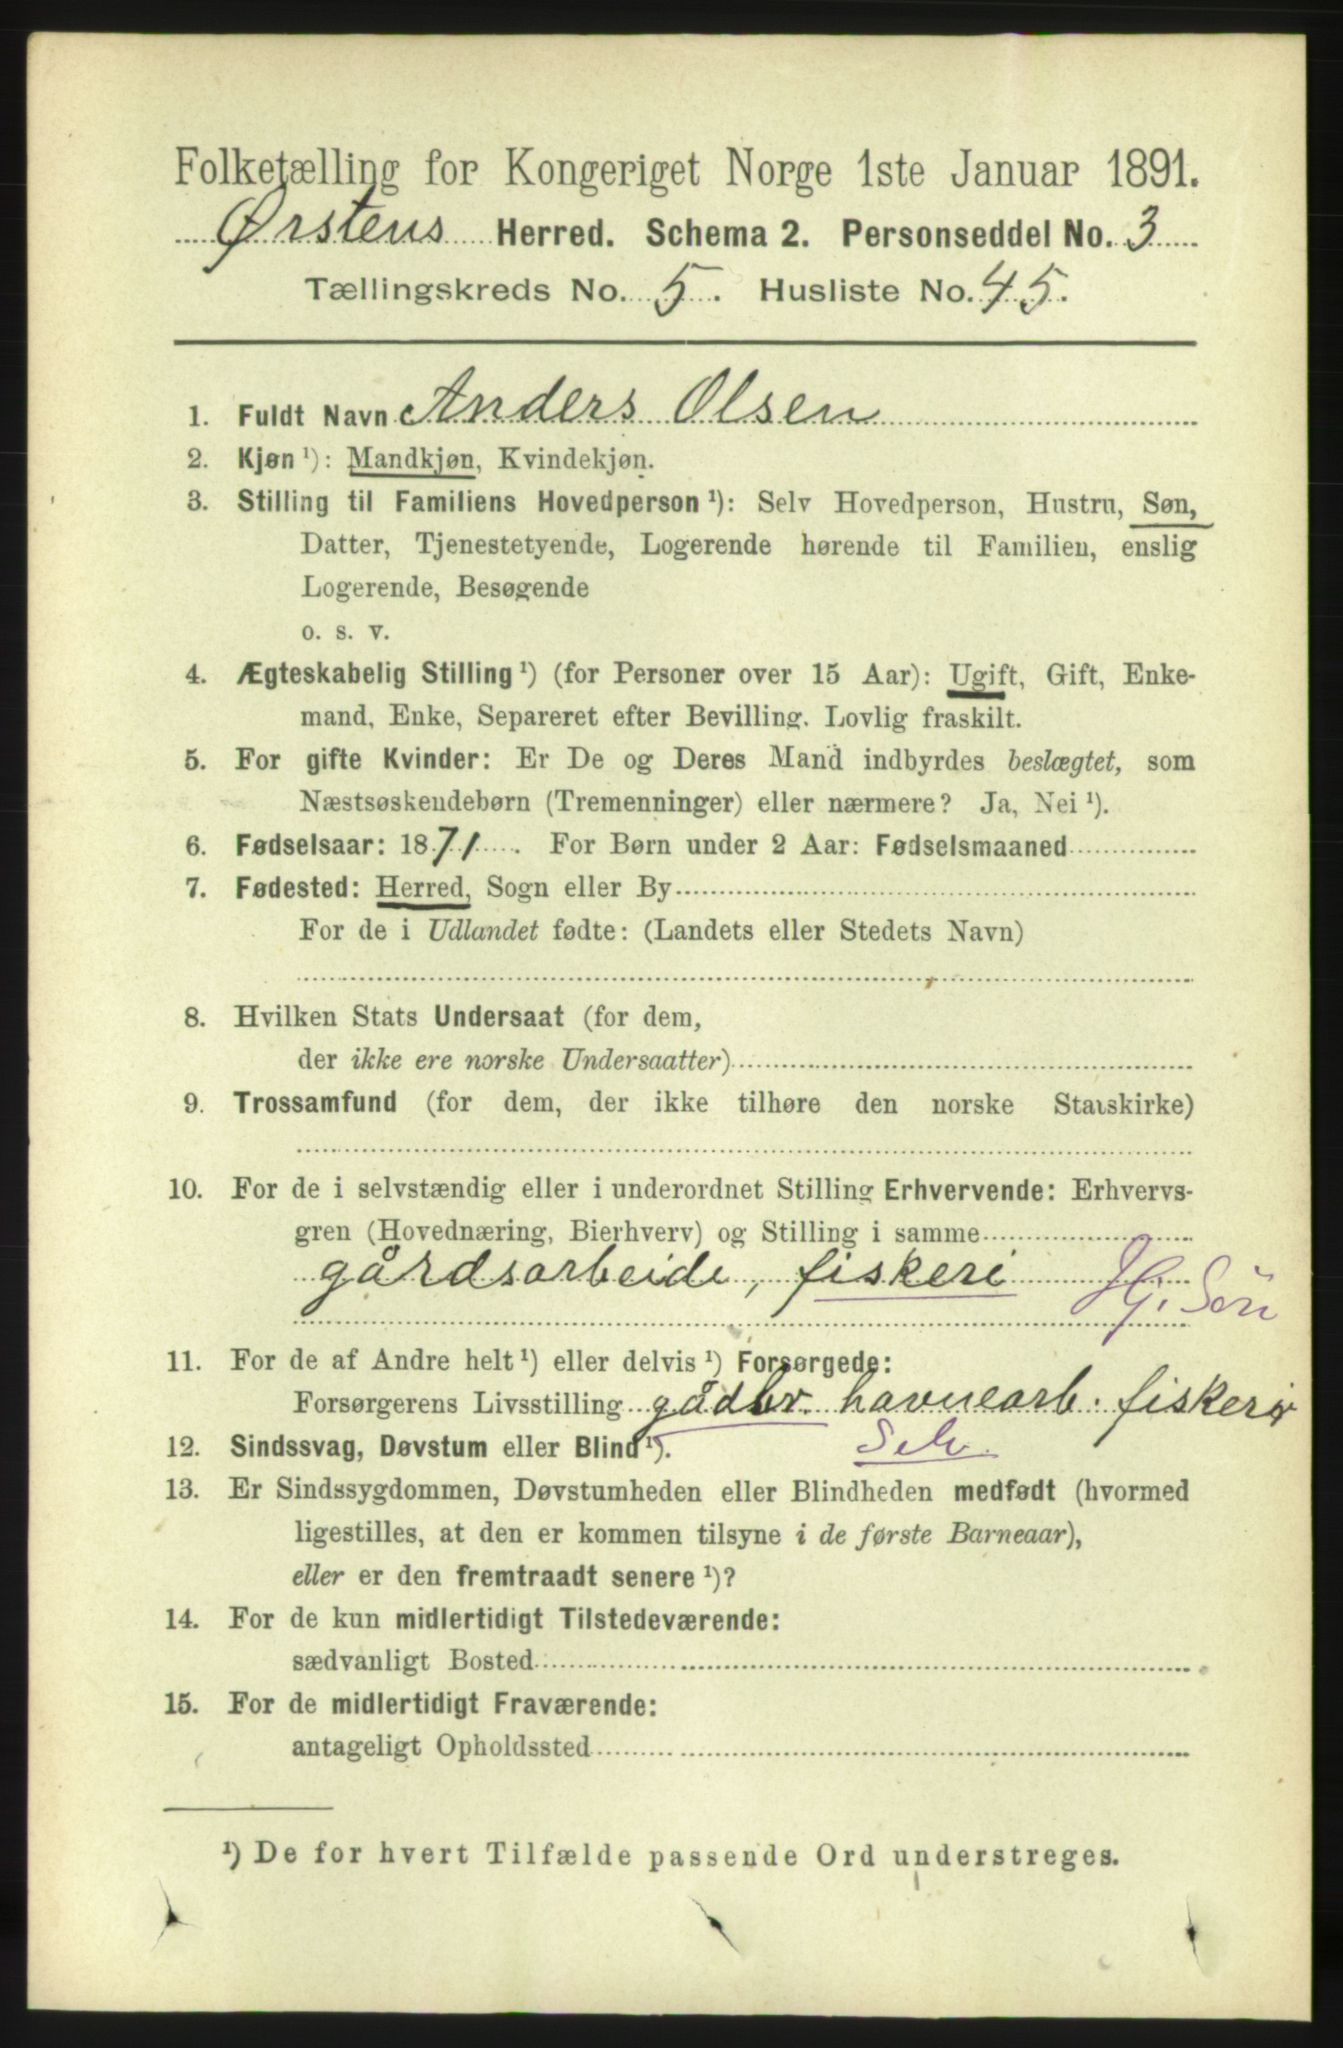 Folketælling for Kongeriget Norge 1ste Januar 1891.
Ørstens Herred. Schema 2. Personseddel No. 3
Tællingskreds No. 5. Husliste No. 45.
1. Fuldt Navn Anders Olsen
2. Kjøn ¹): Mandkjøn, Kvindekjøn.
3. Stilling til Familiens Hovedperson ¹): Selv Hovedperson, Hustru, Søn,
Datter, Tjenestetyende, Logerende hørende til Familien, enslig
Logerende, Besøgende
o. s. v.
4. Ægteskabelig Stilling ¹) (for Personer over 15 Aar): Ugift, Gift, Enke-
mand, Enke, Separeret efter Bevilling. Lovlig fraskilt.
5. For gifte Kvinder: Er De og Deres Mand indbyrdes beslægtet, som
Næstsøskendebørn (Tremenninger) eller nærmere? Ja, Nei ¹).
6. Fødselsaar: 1871. For Børn under 2 Aar: Fødselsmaaned
7. Fødested: Herred, Sogn eller By
For de i Udlandet fødte: (Landets eller Stedets Navn)
8. Hvilken Stats Undersaat (for dem,
der ikke ere norske Undersaatter)
9. Trossamfund (for dem, der ikke tilhøre den norske Statskirke)
10. For de i selvstændig eller i underordnet Stilling Erhvervende: Erhvervs-
gren (Hovednæring, Bierhverv) og Stilling i samme
gårdsarbeide, fiskeri Hj. Søn
11. For de af Andre helt ¹) eller delvis ¹) Forsørgede:
Forsørgerens Livsstilling gådbr. havnearb. fiskeri
12. Sindssvag, Døvstum eller Blind ¹). Selv.
13. Er Sindssygdommen, Døvstumheden eller Blindheden medfødt (hvormed
ligestilles, at den er kommen tilsyne i de første Barneaar),
eller er den fremtraadt senere ¹)?
14. For de kun midlertidigt Tilstedeværende:
sædvanligt Bosted
15. For de midlertidigt Fraværende:
antageligt Opholdssted
¹) De for hvert Tilfælde passende Ord understreges.